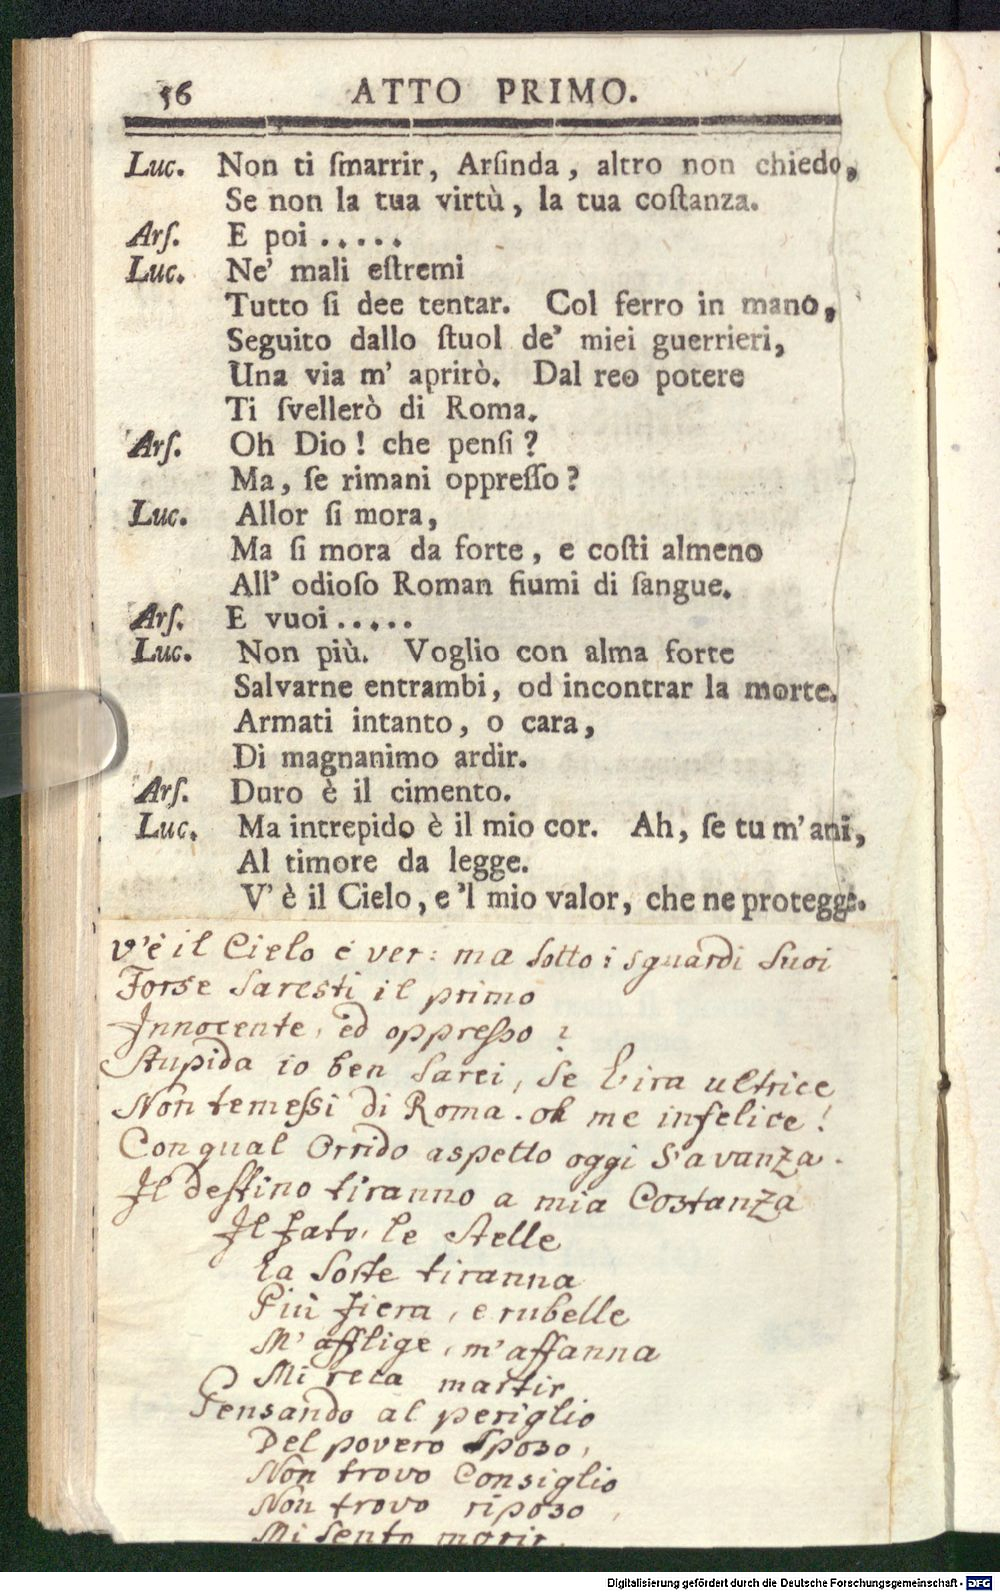 56 ATTO PRIMO.
Luc. Non ti ſmarrir, Arſinda, altro non chiedo,
Se non la tua virtù, la tua coſtanza.
Arſ. E poi . . . . .
Luc. Ne' mali eſtremi
Tutto ſi dee tentar. Col ferro in mano,
Seguito dallo ſtuol de' miei guerrieri,
Una via m' aprirò. Dal reo potere
Ti ſvellerò di Roma.
Arſ. Oh Dio! che penſi?
Ma, ſe rimani oppreſſo?
Luc. Allor ſi mora,
Ma ſi mora da forte, e coſti almeno
All' odioſo Roman fiumi di ſangue.
Arſ. E vuoi . . . . .
Luc. Non più. Voglio con alma forte
Salvarne entrambi, od incontrar la morte.
Armati intanto, o cara,
Di magnanimo ardir.
Arſ. Duro è il cimento.
Luc. Ma intrepido è il mio cor. Ah, ſe tu m' ani,
Al timore da legge.
V' è il Cielo, e 'l mio valor, che ne protegge.
v'è il Cielo è ver: ma sotto i sguardi suoi
Forse saresti il primo
Innocente, ed oppreſso?
Stupida io ben sarei, se l'ira ultrice
Non temeſsi di Roma. oh me infelice!
Con qual orrido aspetto oggi s'avanza.
Il deſtino tiranno a mia Costanza
Il fato, le stelle
la sorte tiranna
Più fiera, e rubelle
M' afflige, m'affanna
Mi reca martir
Pensando al periglio
Del povero sposo,
Non trovo Consiglio
Non trovo riposo,
Mi sento morir.
Digitalisierung gefördert durch die Deutsche Forschungsgemeinschaft - DFG